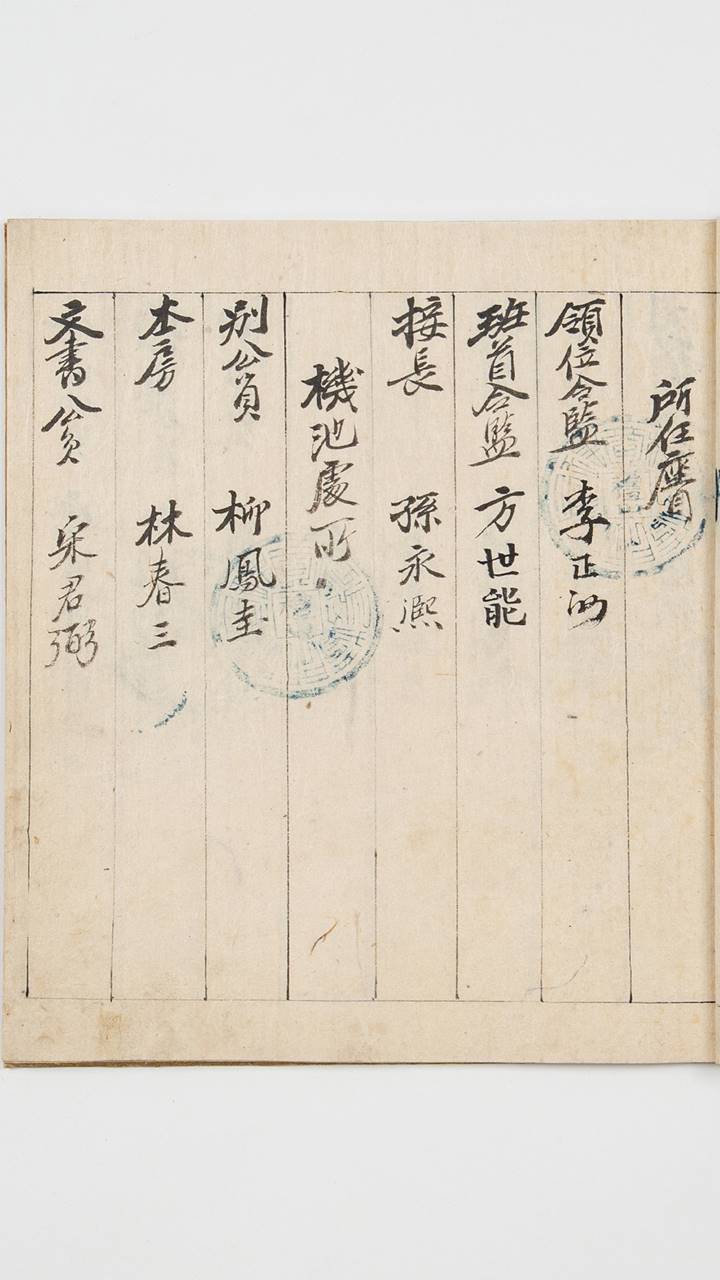 所任座目
領位令監 李正洲
班首令監 方世能
接長 孫永熙
機池處所
別公員 柳鳳圭
本房 林春三
文書公員 宋君弼